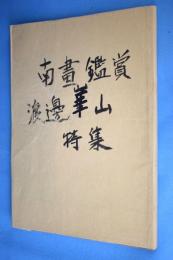 南畫鑑賞
渡邊崋山
特集